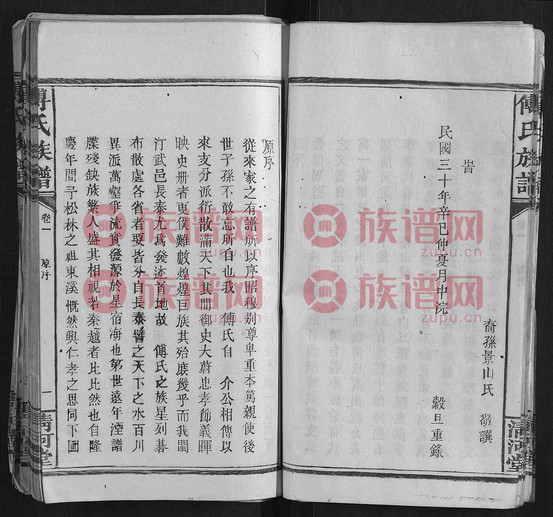 傅氏族譜
旹
民國三十年辛巳仲夏月中浣
裔孫景山氏 敬譔
穀旦重錄
清河堂
原序
從來家之有譜所以序昭穆别尊卑重本篤親使後
世子孫不敢忘所自也我 傅氏自 介公相傅以
來支分派衍散滿天下其間御史大蔚忠孝節義暉
映史册者更僕難數煌煌巨族其殆庶幾乎而我閩
汀武邑長泰尤為發迹首地故 傅氏之族星列碁
布散處各省者要皆分自長泰譬之天下之水百川
異派萬壑寒流實發源於星宿海也第世遠年湮譜
牒殘缺族繁人盛其相視若秦越者比比然也自隆
慶年間予松林之祖東溪慨然興仁孝之思同下畐
傅氏族譜
卷一
原序
一
清河堂
族谱网
zupu.cn
族谱网
zupu.cn
族谱网
zupu.cn
族谱网
zupu.cn